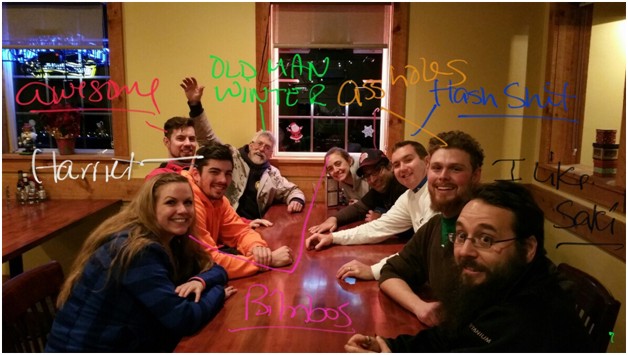 awesome
OLD MAN
WINTER
assholes
Hash Slut
Harriet
I like
Saki
Bimbos